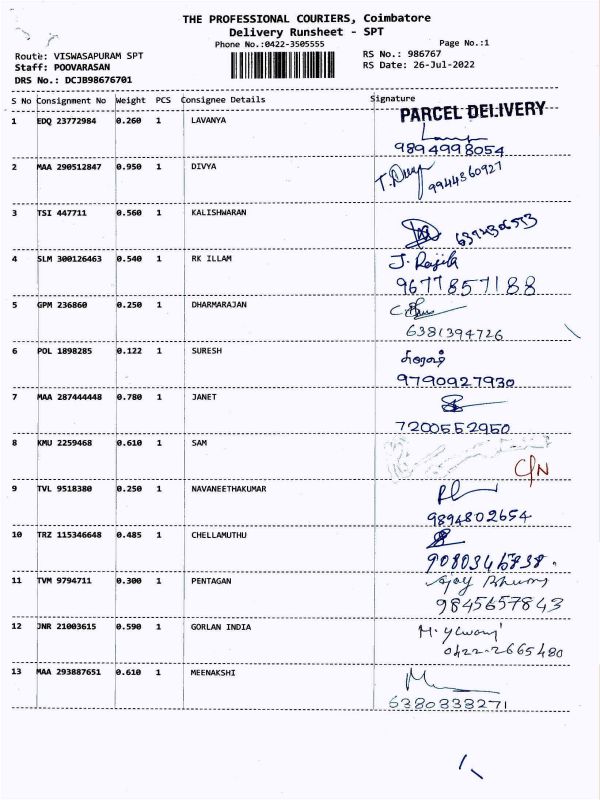 THE PROFESSIONAL COURIERS, Coimbatore
Delivery Runsheet - SPT
Phone No.:0422-3505555 Page No.:1
Route: VISWASAPURAM SPT RS No.: 986767
Staff: POOVARASAN RS Date: 26-Jul-2022
DRS No.: DCJB98676701
S No Consignment No Weight PCS Consignee Details Signature
PARCEL DELIVERY
1 EDQ 23772984 0.260 1 LAVANYA
9894998054
2 MAA 290512847 0.950 1 DIVYA
9944360927
3 TSI 447711 0.560 1 KALISHWARAN
4 SLM 300126463 0.540 1 RK ILLAM
9677857188
5 GPM 236860 0.250 1 DHARMARAJAN
6381394726
6 POL 1898285 0.122 1 SURESH
9790927930
7 MAA 287444448 0.780 1 JANET
7200552950
8 KMU 2259468 0.610 1 SAM
C/N
9 TVL 9518380 0.250 1 NAVANEETHAKUMAR
9894802654
10 TRZ 115346648 0.485 1 CHELLAMUTHU
11 TVM 9794711 0.300 1 PENTAGAN
9845657843
12 JNR 21003615 0.590 1 GORLAN INDIA
0422-2665480
13 MAA 293887651 0.610 1 MEENAKSHI
6380838271